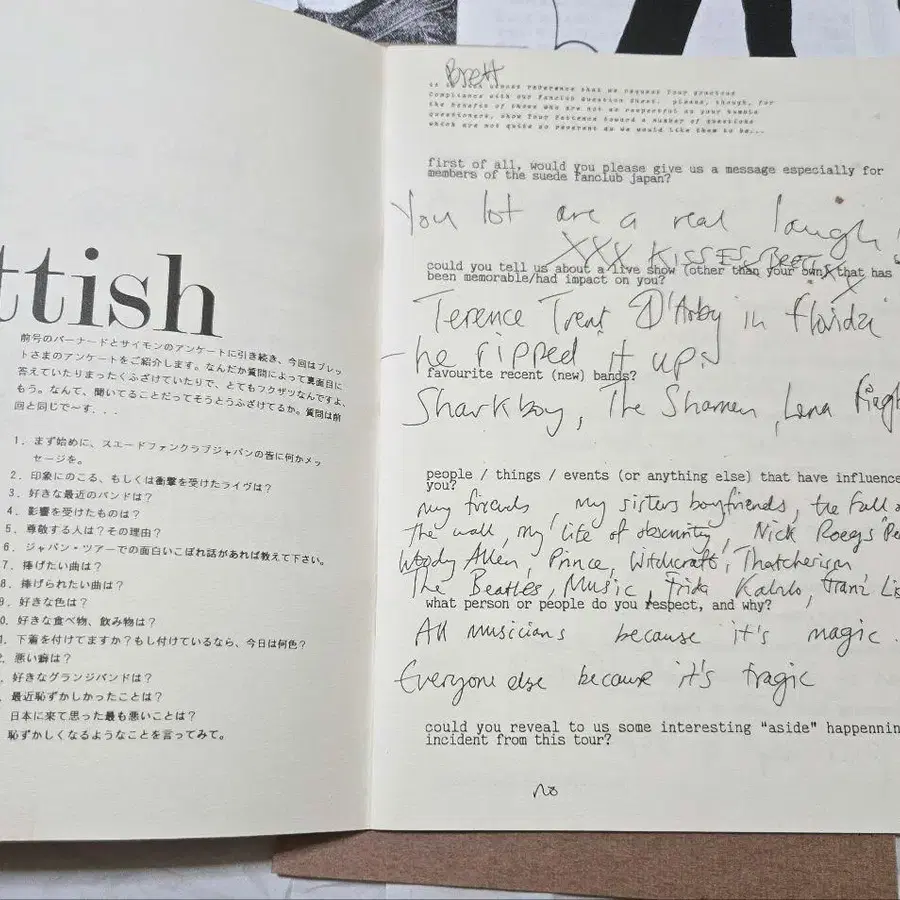 ttish
前号のバーナードとサイモンのアンケートに引き続き、今回はブレッ
トさまのアンケートをご紹介します。なんだか質問によって真面目に
答えていたりまったくふざけていたりで、とてもフクザツなんですよ、
もう。なんて、聞いてることだってそうとうふざけてるか。質問は前
回と同じで〜す...
1. まず始めに、スエードファンクラブジャパンの皆に何かメッ
セージを。
2. 印象にのこる、もしくは衝撃を受けたライヴは?
3. 好きな最近のバンドは?
4. 影響を受けたものは?
5. 尊敬する人は?その理由?
6. ジャパン・ツアーでの面白いこぼれ話があれば教えて下さい。
7. 捧げたい曲は?
8. 捧げられたい曲は?
9. 好きな色は?
0. 好きな食べ物、飲み物は?
1. 下着を付けてますか?もし付けているなら、今日は何色?
2. 悪い癖は?
好きなグランジバンドは?
最近恥ずかしかったことは?
日本に来て思った最も悪いことは?
恥ずかしくなるようなことを言ってみて。
Brett
utmost reverence that we request your gracious
compliance with our fanclub question sheet. please, though, for
the benefit of those who are not as respectful as your humble
questioners, show your patience toward a number of questions
which are not quite so reverent as we would like them to be...
first of all, would you please give us a message especially for
members of the suede fanclub japan?
You lot are a real laugh
XXX KISSES BRETT X
X
could you tell us about a live show (other than your own) that has
been memorable/had impact on you?
Terence Trent D'Arby in florida
- he ripped it up.
favourite recent (new) bands?
Sharkboy, The Shamen, Lena
people / things / events (or anything else) that have influence
you?
my friends, my sisters boyfriends, the Fall
the wall, my life of obscurity, Nick Roegs "Pe
Woody Allen, Prince, Witchcraft, Thatcherism
The Beatles, Music, Frida Kahlo, Franz Lis
what person or people do you respect, and why?
All musicians because it's magic.
Everyone else because it's tragic
could you reveal to us some interesting "aside" happennin
incident from this tour?
no